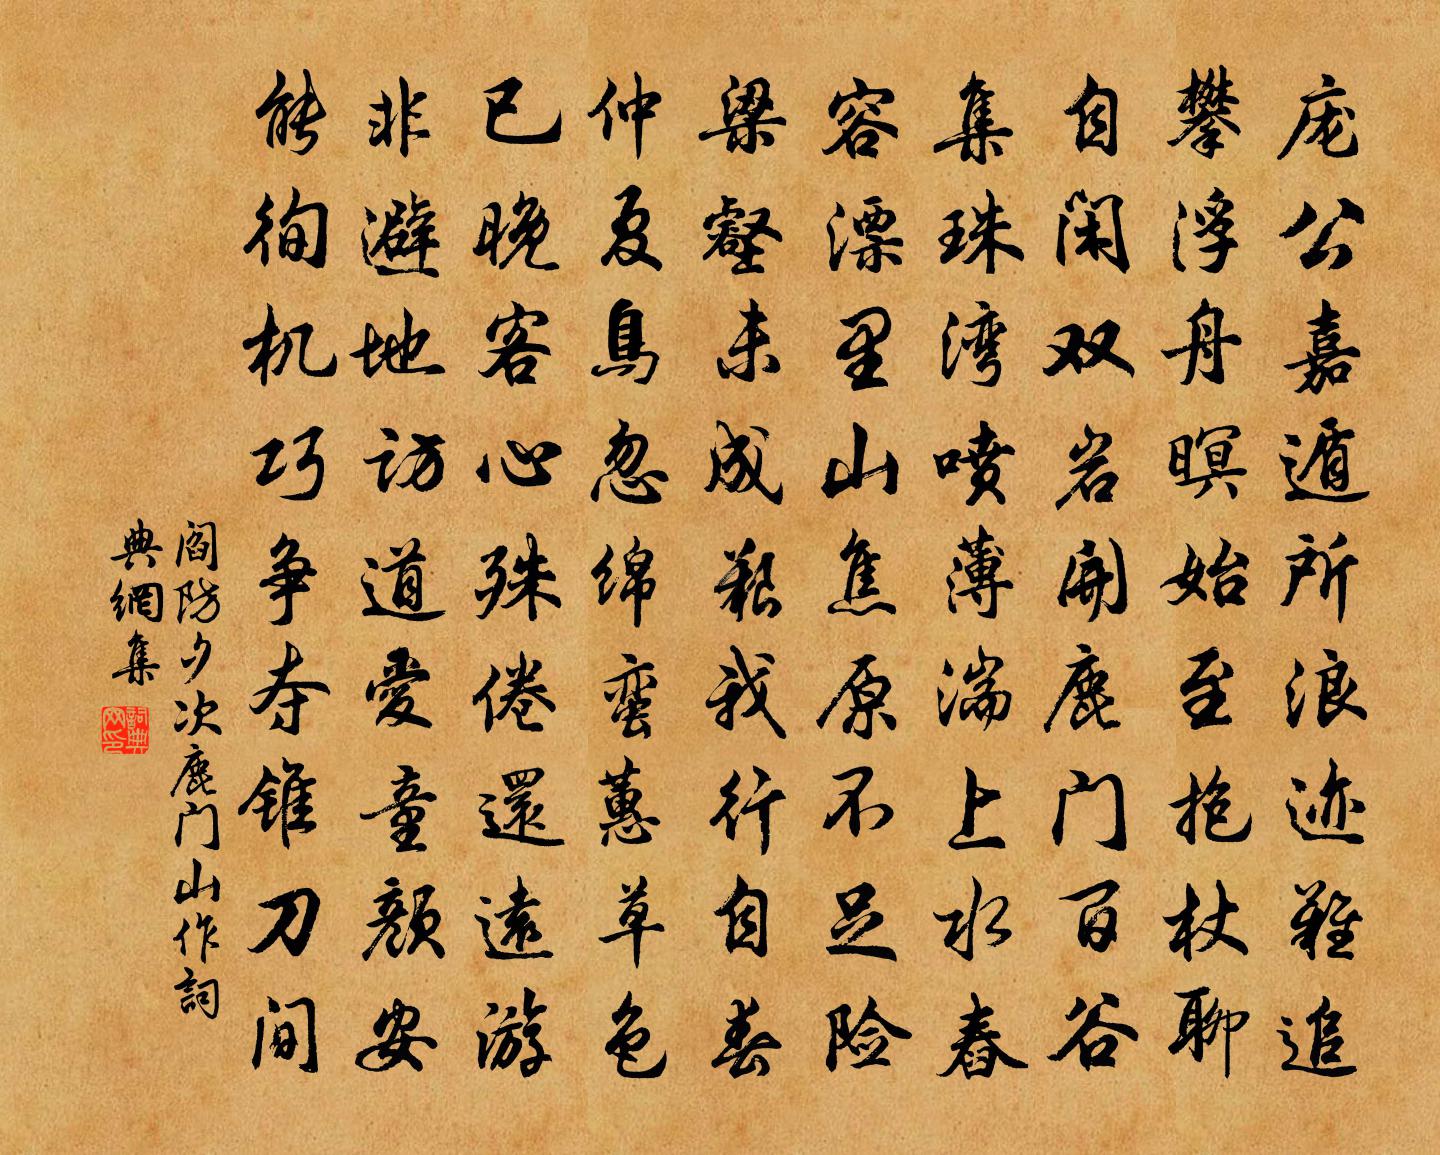 庞公嘉遁所浪迹難追
攀浮舟暝始至抱杖聊
自闲双岩開鹿门百谷
集珠湾喷薄湍上水舂
容漂里山焦原不足险
梁壑未成艱我行自春
仲夏鳥忽绵蛮蕙草色
已晚客心殊倦還遠游
非避地访道愛童颜安
能徇机巧争夺锥刀间
阎防夕次鹿门山作詞
典網集
詞典
网印